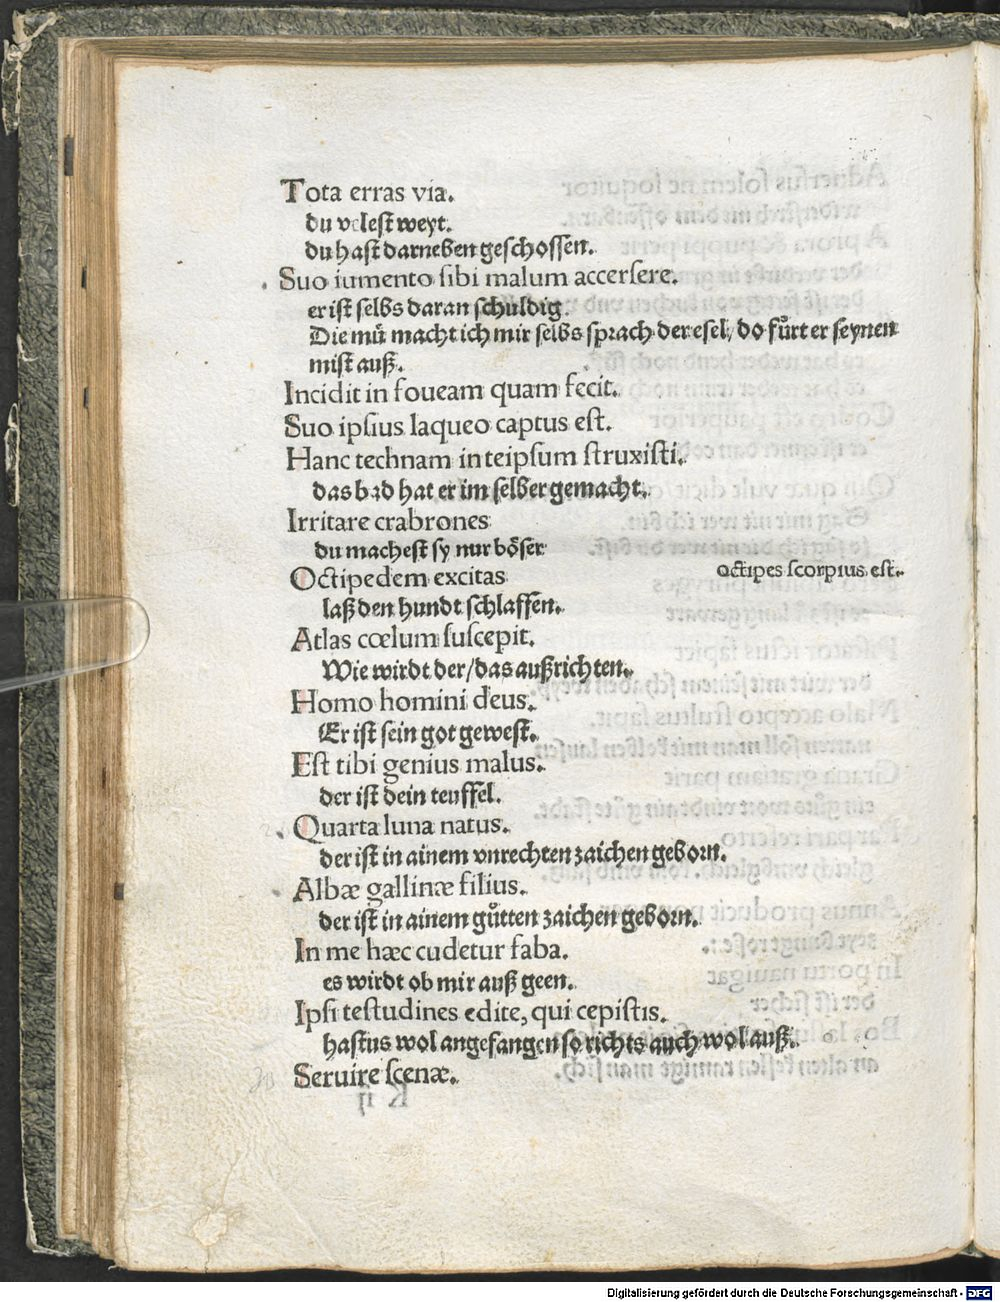 Tota erras via.
du velest weyt.
du hast darneben geschossen.
Suo iumento sibi malum accersere.
er ist selbs daran schuldig.
Die mů macht ich mir selbs sprach der esel/ do fůrt er seynen
mist auß.
Incidit in foueam quam fecit.
Suo ipsius laqueo captus est.
Hanc technam in teipsum struxisti.
das bad hat er im selber gemacht.
Irritare crabrones
du machest sy nur bo̊ser
Octipedem excitas
octipes scorpius est.
laß den hundt schlaffen.
Atlas cœlum suscepit.
Wie wirdt der/das außrichten.
Homo homini deus.
Er ist sein got gewest.
Est tibi genius malus.
der ist dein teuffel.
Quarta luna natus.
der ist in ainem vnrechten zaichen geborn.
Albæ gallinæ filius.
der ist in ainem gůtten zaichen geborn.
In me hæc cudetur faba.
es wirdt ob mir auß geen.
Ipsi testudines edite, qui cepistis.
hastus wol angefangen so richts auch wol auß.
Seruire scenæ.
Digitalisierung gefördert durch die Deutsche Forschungsgemeinschaft - DFG